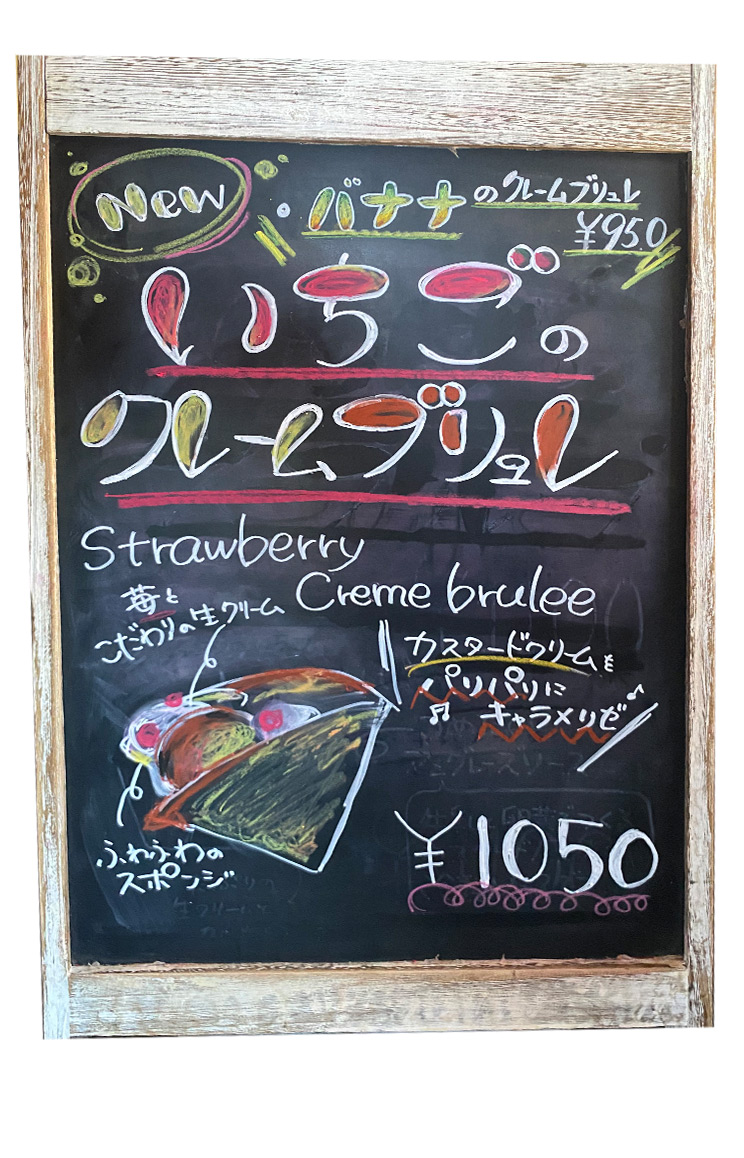 New
・バナナのクレームブリュレ
¥950
いちごの
クレームブリュレ
Strawberry
Creme brulee
苺と
こだわりの生クリーム
カスタードクリームを
パリパリに
キャラメリゼ
ふわふわの
スポンジ
¥1050